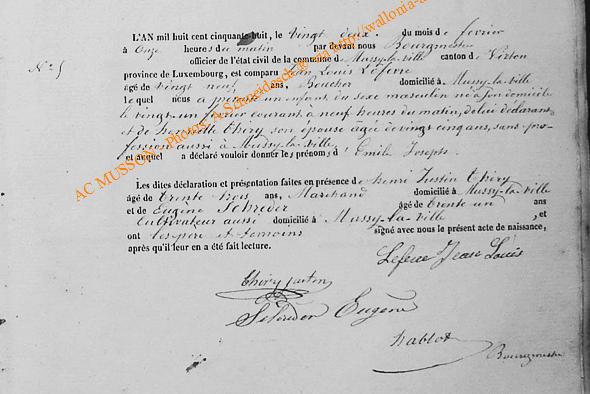 N° 5
L'AN mil huit cent cinquante huit, le vingt deux. du mois de février
à Onze heures du matin par devant nous Bourgmestre
officier de l'état civil de la commune de Mussy-la-ville canton de Virton
province de Luxembourg, est comparu Jean Louis Lefevre
âgé de vingt neuf ans, Boucher domicilié à Mussy-la-ville
lequel nous a présenté un enfant du sexe masculin né à son domicile
le vingt-un février courant à neuf heures du matin, de lui déclarant
et de Henriette Thiry son épouse agée de vingt cinq ans, sans pro-
fession aussi à Mussy-la-ville
et auquel a déclaré vouloir donner les prénoms d' Emile Joseph.
Les dites déclaration et présentation faites en présence de Henri Justin Thiry
âgé de trente trois ans, Marchand domicilié à Mussy-la-ville
et de Eugène Schreder âgé de trente un ans
Cultivateur aussi domicilié à Mussy-la-ville , et
ont les père et temoins signé avec nous le présent acte de naissance,
après qu'il leur en a été fait lecture.
Lefevre Jean Louis
Thiry justin
Eugène
habbot
Bourgmestre
AC MUSSON - Photos: A. Schneidesch http://wallonia-a